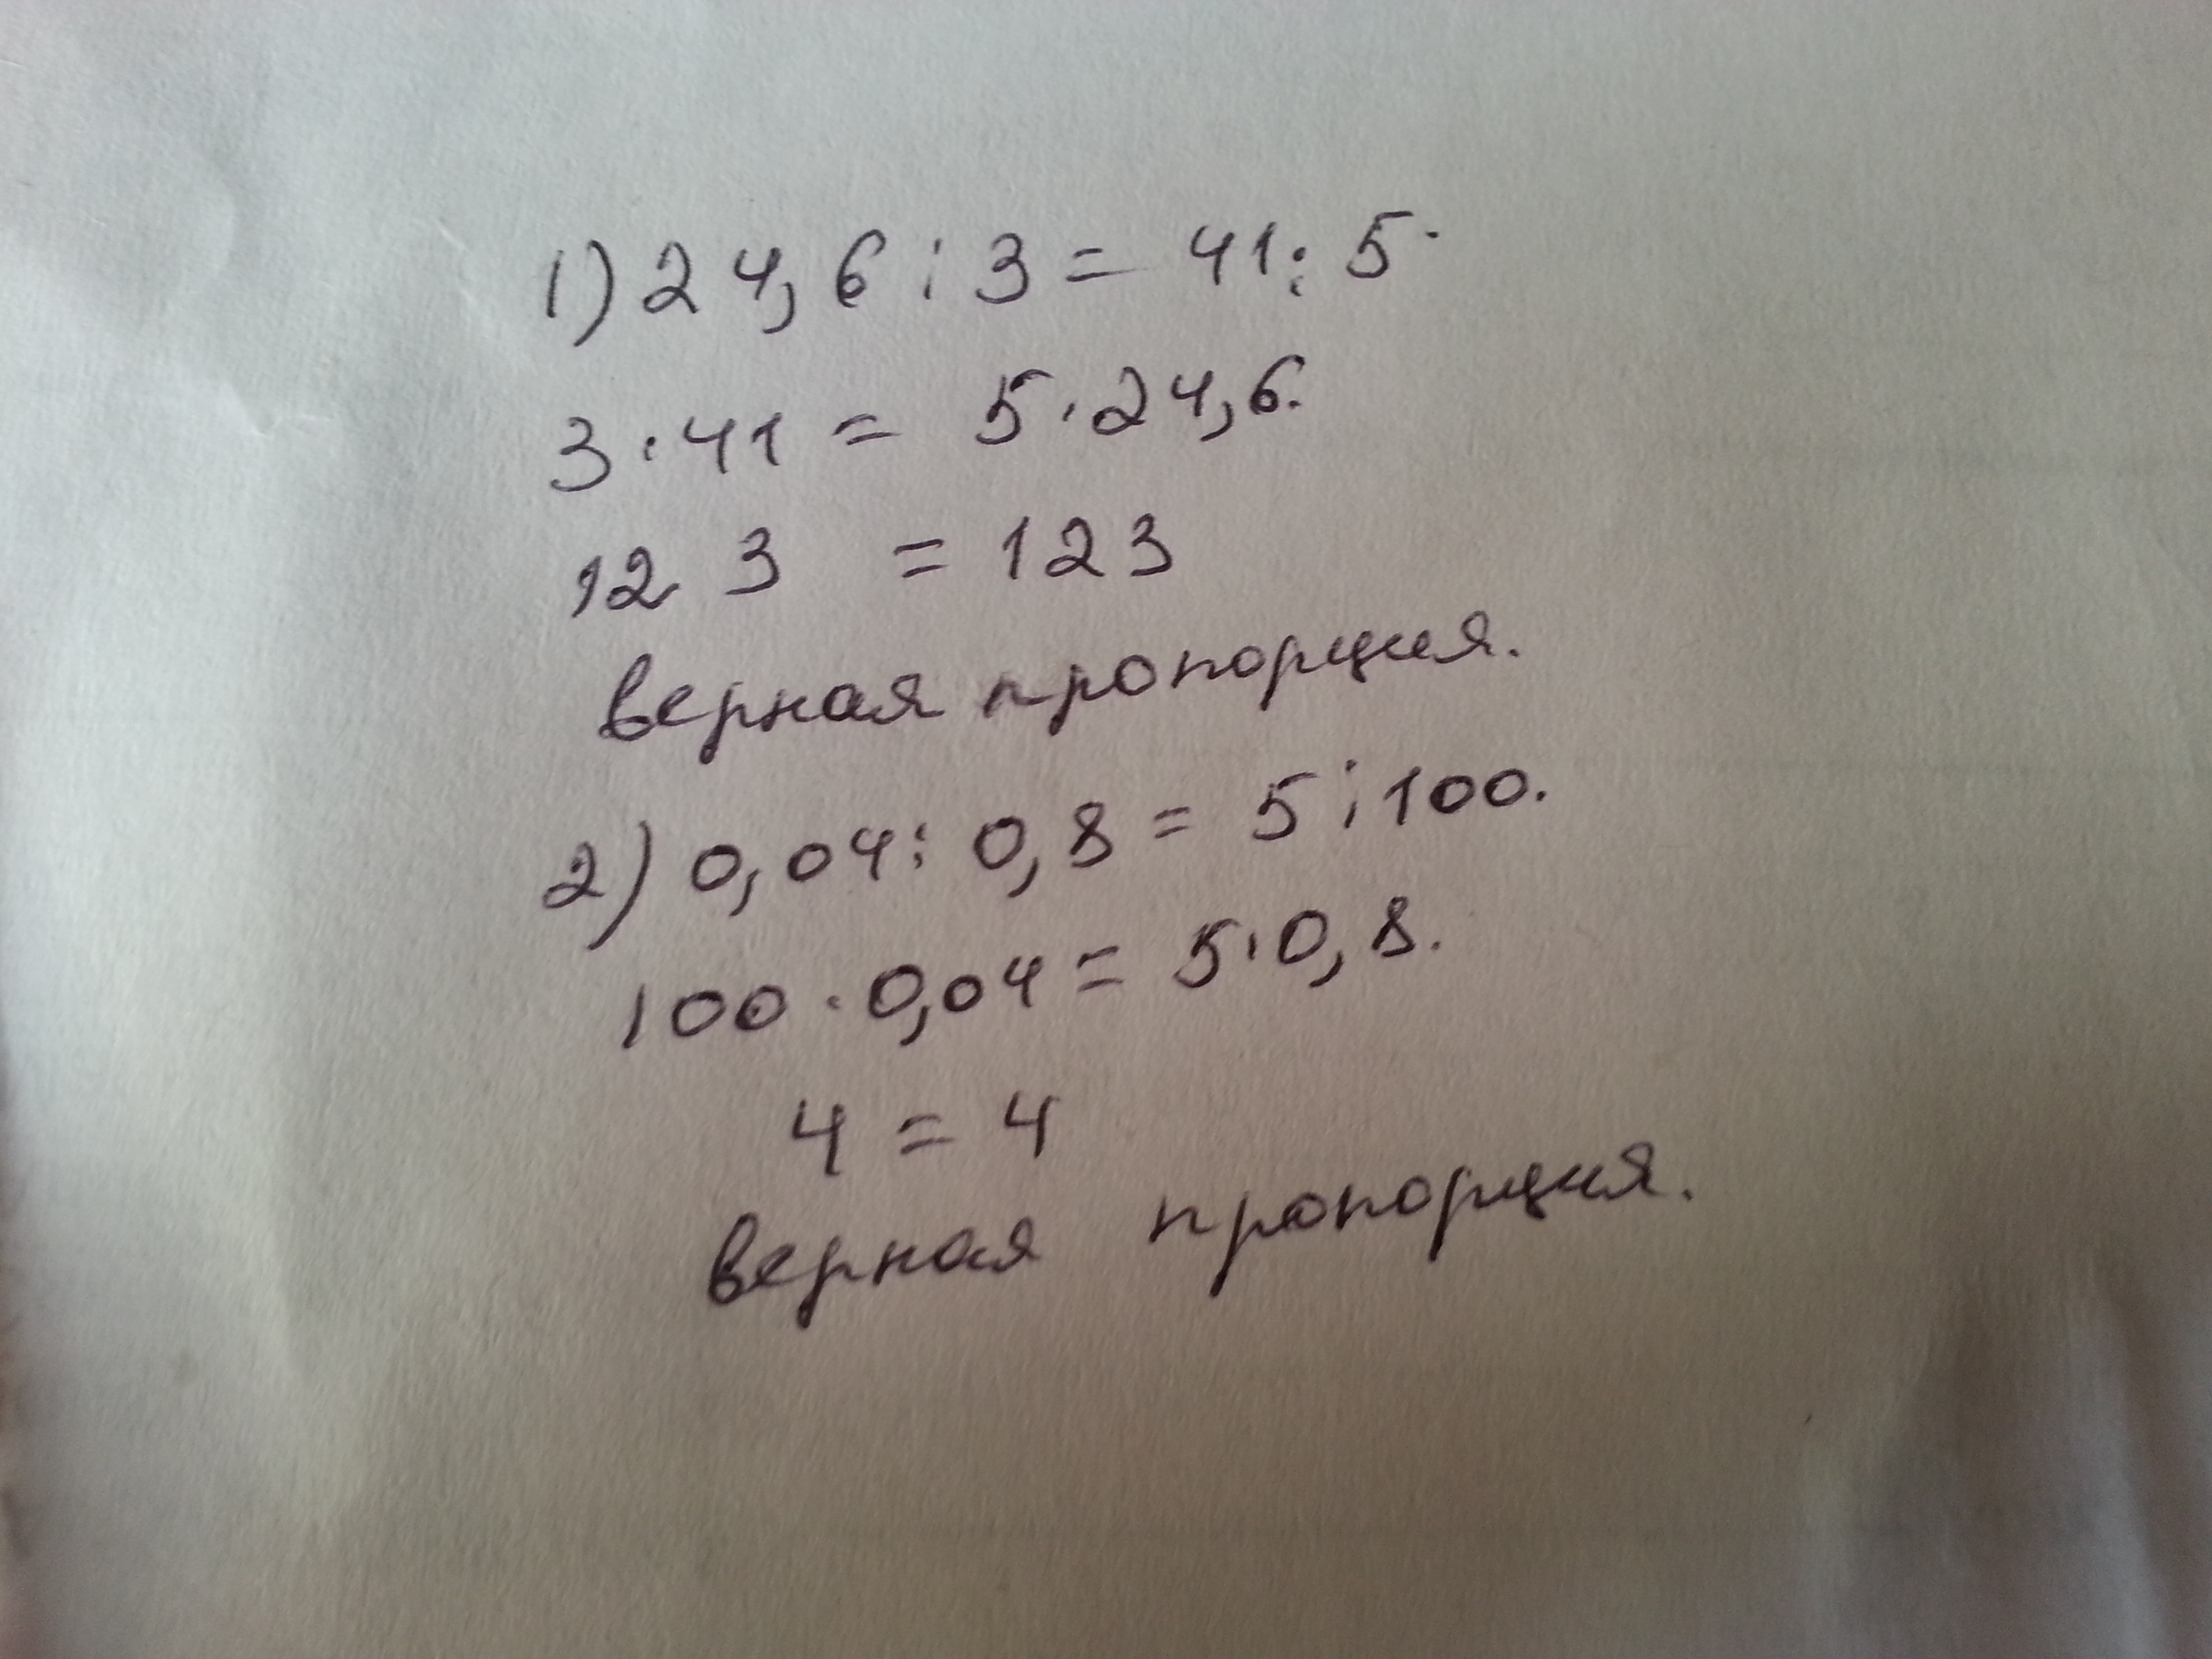 1) 24,6 : 3 = 41 : 5.
3 · 41 = 5 · 24,6.
123 = 123
верная пропорция.
2) 0,04 : 0,8 = 5 : 100.
100 · 0,04 = 5 · 0,8.
4 = 4
верная пропорция.